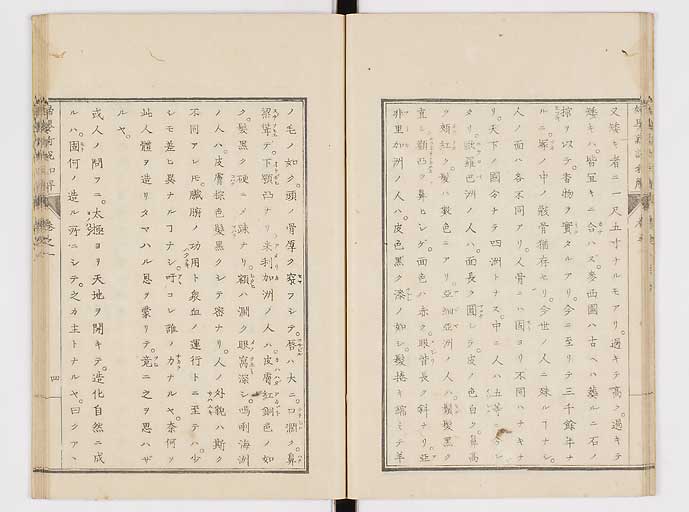 又矮キ者ニ一尺五寸ナルモアリ。過キテ高ク。過キテ
矮キハ。皆宜キニ合ハズ。麥西國ハ古ヘハ葬ルニ石ノ
棺ヲ以テ。香物ヲ實タルアリ。今ニ至リテ三千餘年ナ
ルニ。冢ノ中ノ骸骨猶存セリ。今世ノ人ニ殊ルヿナシ。
人ノ面ハ各不同アリ。人骨ニハ國ヨリ不同ハナキナ
リ。天下ノ國分ナテ四洲トナス。中ニ人ハ五等
タリ。歐羅巴洲ノ人ハ。面長ク圓シテ。皮ノ色白ク。鼻高
ク頰紅ク。髮ハ數色ニアリ。亞細亞洲ノ人ハ。鬚髮黑ク
直ニ。顴凸ク鼻ヒシゲ。面色ハ赤ク。眼眥長ク斜ナリ。亞
非里加洲ノ人ハ。皮色黑ク漆ノ如シ。髮捲キ綿ミテ羊
ノ毛ノ如ク。頭ノ骨厚ク窄フシテ。唇ハ大ニ。口濶ク。鼻
梁聳テ。下顎凸ナリ。米利加洲ノ人ハ。皮膚紅銅色ノ如
ク。髮黑ク硬ニメ踈ナリ。額ハ濶ク眼窩深シ。嗎唎海洲
ノ人ハ。皮膚棕色髮黑クシテ密ナリ。人ノ外貌ハ斯ク
不同アレ𪜈。臟腑ノ功用ト。血ノ運行トニ至テハ。少
シモ差ヒ異ナルヿナシ。吁コレ誰ノ力ナルヤ。奈何ゾ
此人體ヲ造リタマハル恩ヲ蒙リテ。竟ニ之ヲ思ハザ
ルヤ。
或人ノ問フニ。太極ヨリ天地ヲ開キテ。造化自然ニ成
ルハ。固何ノ造ル所ニシテ。之カ主トナルヤ。曰クアヽ
卷之一
四